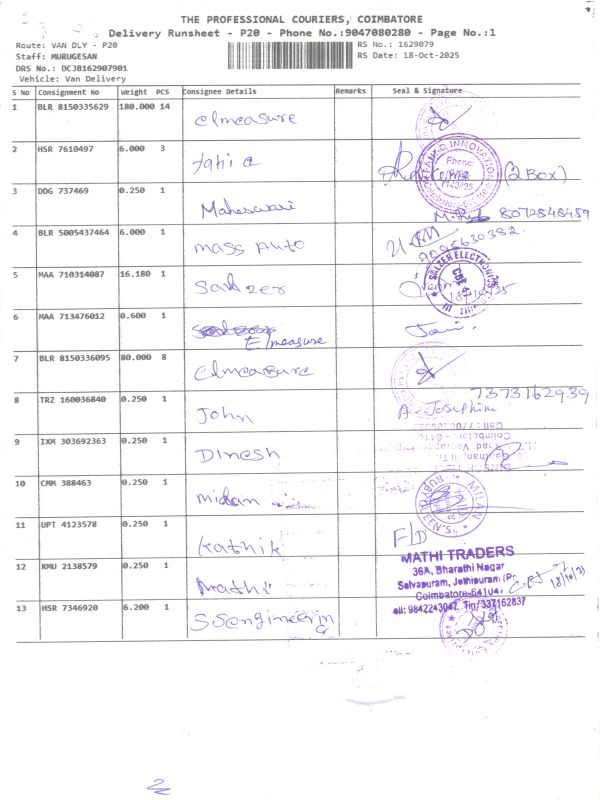 THE PROFESSIONAL COURIERS, COIMBATORE
Delivery Runsheet - P20 - Phone No.:9047080280 - Page No.:1
Route: VAN DLY - P20 RS No.: 1629079
Staff: MURUGESAN RS Date: 18-Oct-2025
DRS No.: DCJB162907901
Vehicle: Van Delivery
S No Consignment No Weight PCS Consignee Details Remarks Seal & Signature
1 BLR 8150335629 180.000 14 elmeasure
2 HSR 7610497 6.000 3 (2 Box)
Phone:
3 DDG 737469 0.250 1 Maheswari 8072848489
4 BLR 5005437464 6.000 1 mass Auto
5 MAA 710314087 16.180 1 Salzer
SALZER ELECTRONICS
CBE
6 MAA 713476012 0.600 1 Elmeasure
7 BLR 8150336095 80.000 8 elmeasure
7373162939
8 TRZ 160036840 0.250 1 John A. Josiphim
9 IXM 303692363 0.250 1 Dinesh
10 CMM 388463 0.250 1 midan
MILAN
11 UPT 4123578 0.250 1 Kathik F/D
12 KMU 2138579 0.250 1 Mathi
MATHI TRADERS
36A, Bharathi Nagar
Selvapuram, Jothipuram (Po
Coimbatore-641047
ell: 9842243047, Tin/337162837
13 HSR 7346920 6.200 1 SSengineering